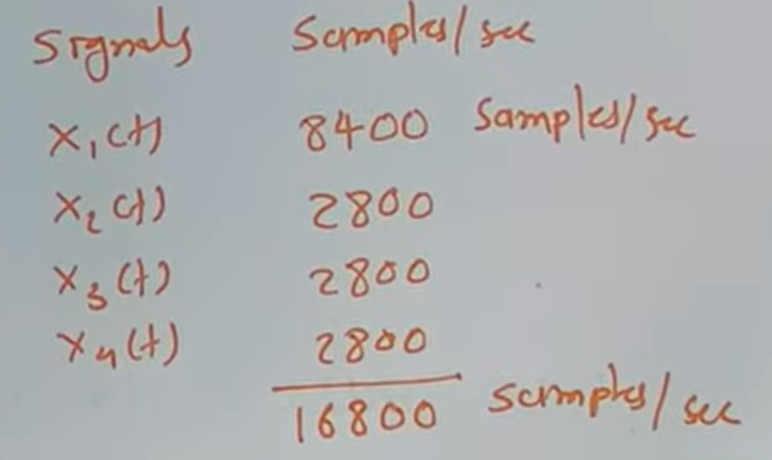 Signals Samples/sec
x₁(t) 8400 samples/sec
x₂(t) 2800
x₃(t) 2800
x₄(t) 2800
16800 samples/sec